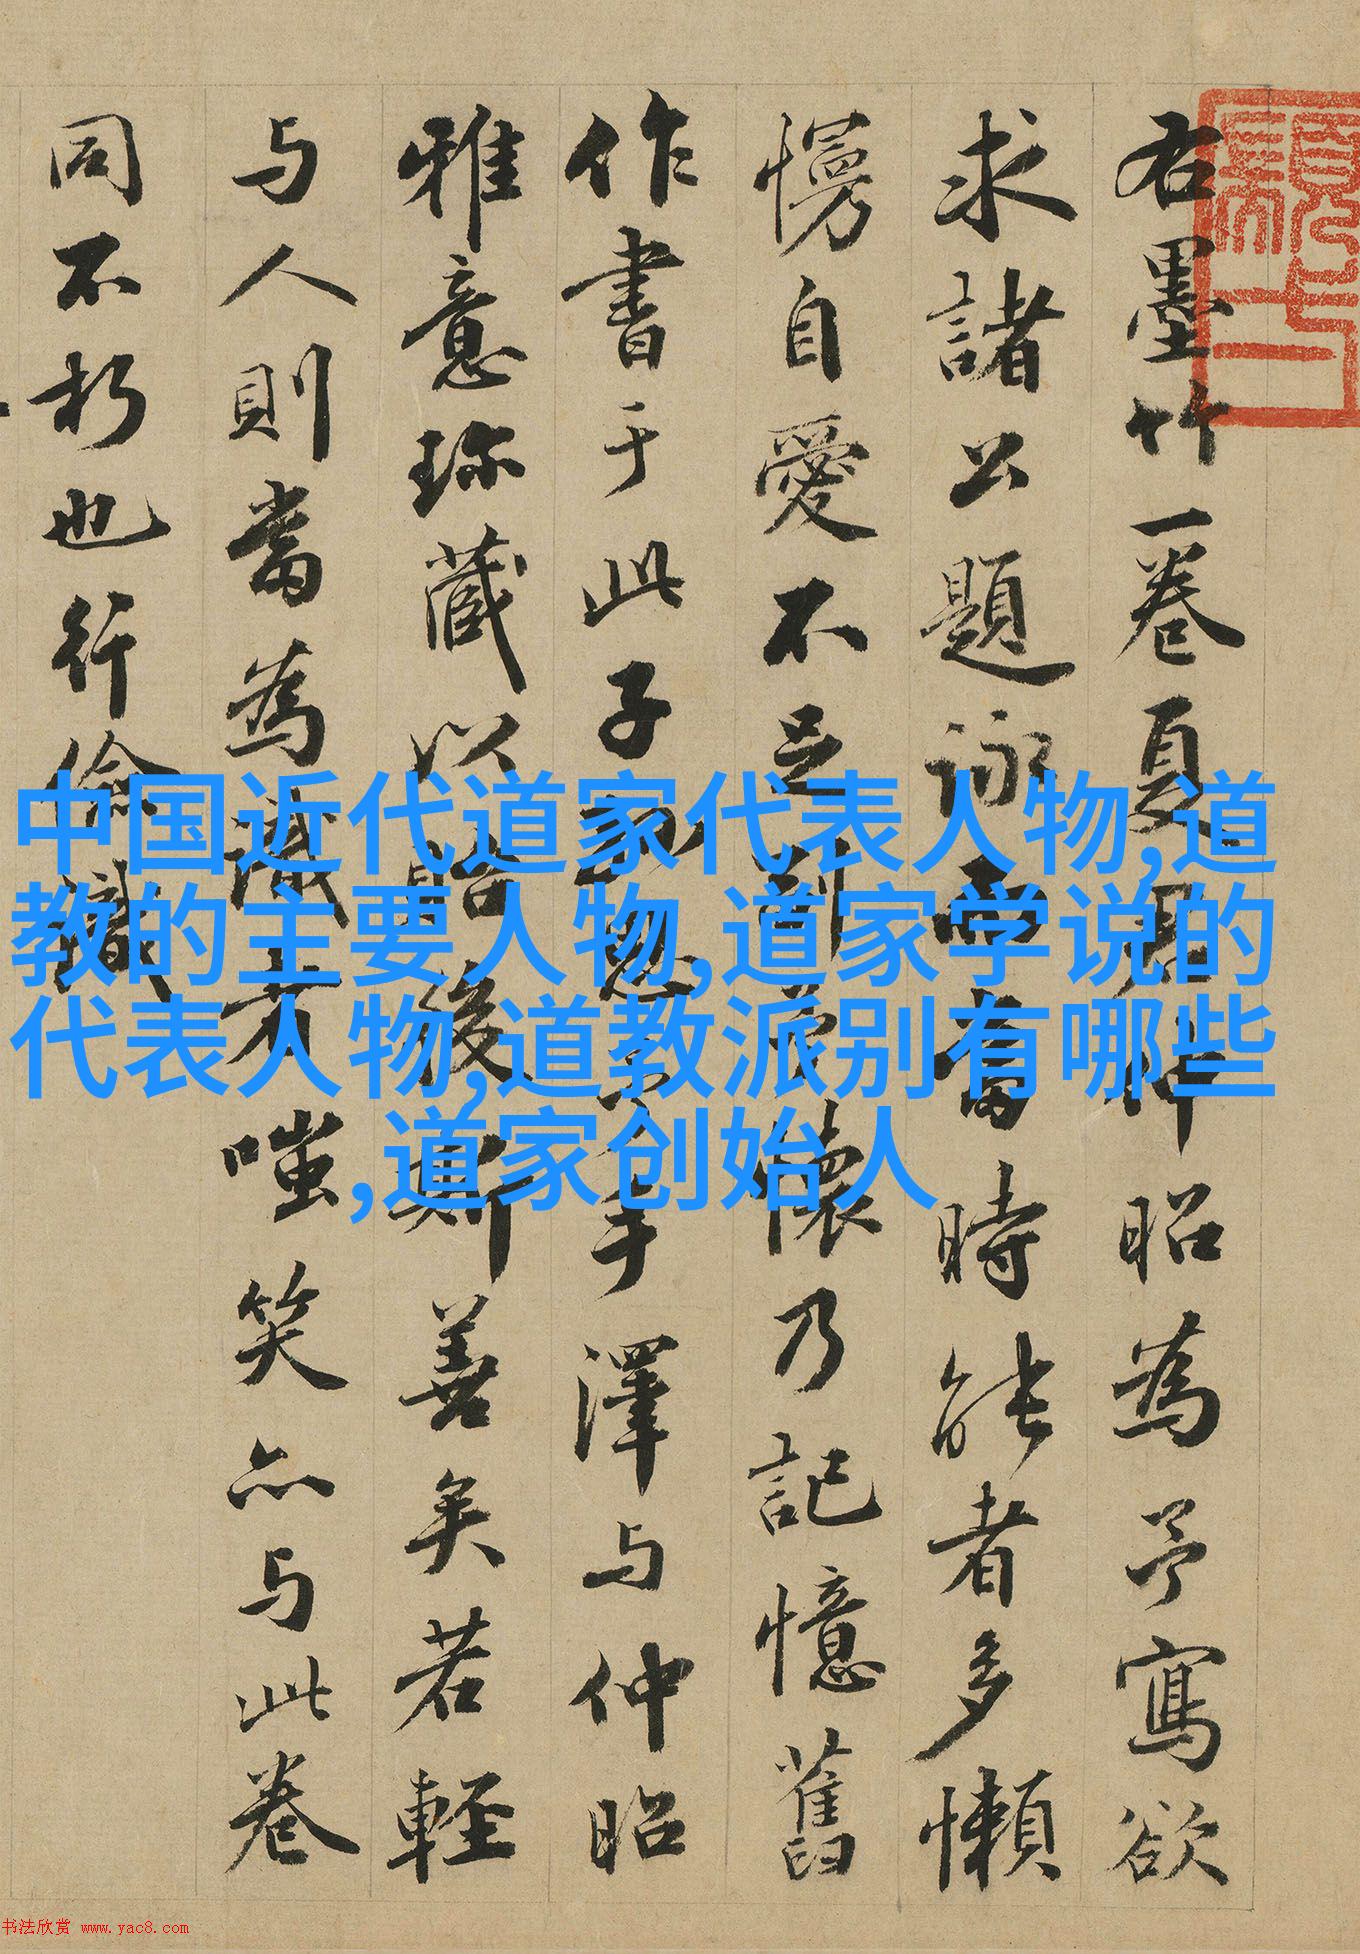 右墨竹一卷夏君仲昭為予寫欲
求諸公題詠而當時能者多懶
慢自愛不足懷乃記憶舊
作書于此子忽手澤与仲昭
雅意珍藏以貽後斯善矣若輕
与人則當為識者嗤笑亦与此卷
同不朽也行儉識
中国近代道家代表人物,道
教的主要人物,道家学说的
代表人物,道教派别有哪些
,道家创始人
书法欣赏 www.yac8.com